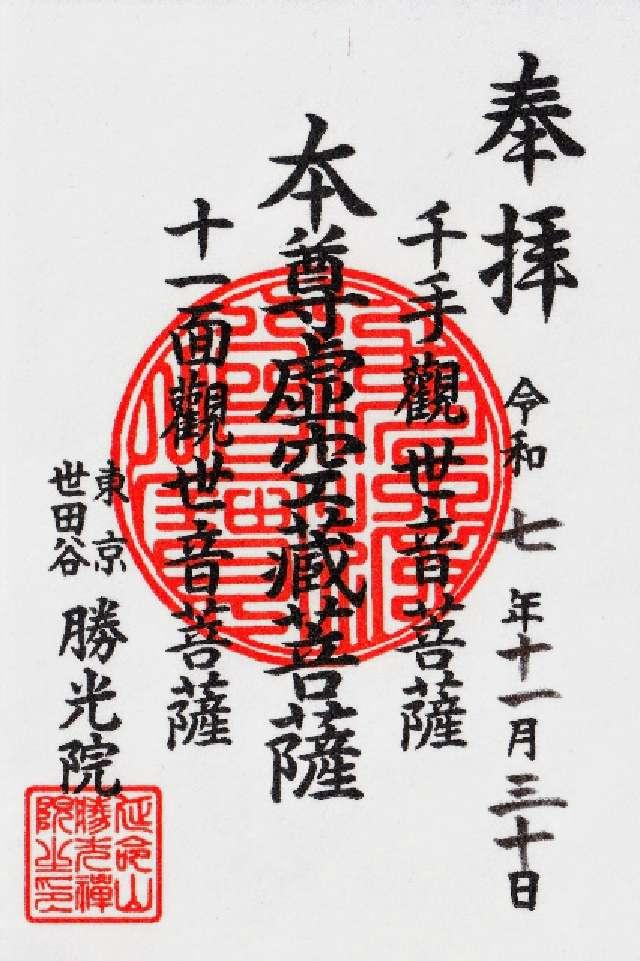 奉拝
令和七年十一月三十日
千手觀世音菩薩
本尊虚空藏菩薩
十一面觀世音菩薩
東京
世田谷
勝光院
延命山
勝光禪
院之印